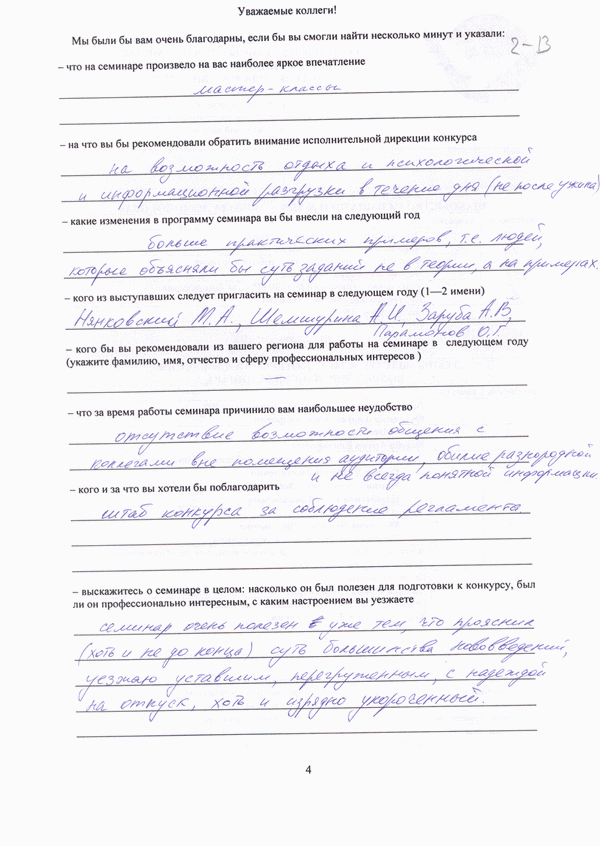 Уважаемые коллеги!
Мы были бы вам очень благодарны, если бы вы смогли найти несколько минут и указали:
2-13
– что на семинаре произвело на вас наиболее яркое впечатление
мастер-классы
– на что вы бы рекомендовали обратить внимание исполнительной дирекции конкурса
на возможность отдыха и психологической
и информационной разгрузки в течение дня (не после ужина)
– какие изменения в программу семинара вы бы внесли на следующий год
больше практических примеров, т.е. людей,
которые объясняли бы суть заданий не в теории, а на примерах.
– кого из выступавших следует пригласить на семинар в следующем году (1—2 имени)
Нянковский М.А., Шемшурина А.И, Заруба А.В,
Парамонов О.Г.
– кого бы вы рекомендовали из вашего региона для работы на семинаре в следующем году
(укажите фамилию, имя, отчество и сферу профессиональных интересов )
—
– что за время работы семинара причинило вам наибольшее неудобство
отсутствие возможности общения с
коллегами вне помещения аудитории, обилие разнородной
и не всегда понятной информации.
– кого и за что вы хотели бы поблагодарить
штаб конкурса за соблюдение регламента.
– выскажитесь о семинаре в целом: насколько он был полезен для подготовки к конкурсу, был
ли он профессионально интересным, с каким настроением вы уезжаете
семинар очень полезен уже тем, что прояснил
(хоть и не до конца) суть большинства нововведений,
уезжаю уставшим, перегруженным, с надеждой
на отпуск, хоть и изрядно укороченный.
4